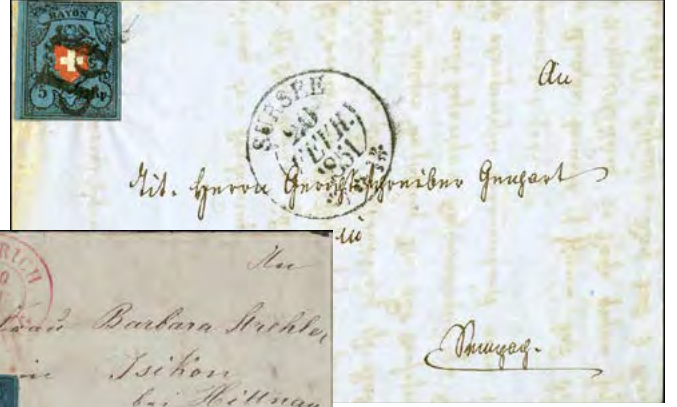 RAYON I.
5
SURSEE
20
FEVR!
1851
An
Tit. Herrn Gerichtschreiber Genhart
in
Sempach.
RICH
An
Frau Barbara Strehler
in Isikon
bei Hittnau